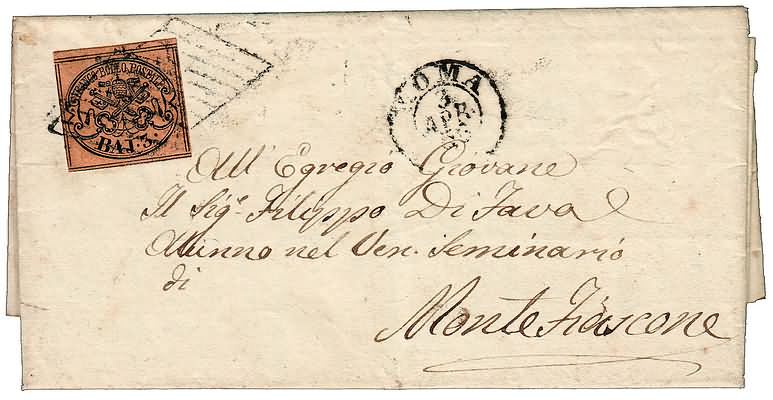 FRANCO BOLLO POSTALE
BAJ: 3:
ROMA
3
APR
All' Egregio Giovane
Il Sig.e Filippo Di Fava
Alunno nel Ven. Seminario
di
Montefiascone